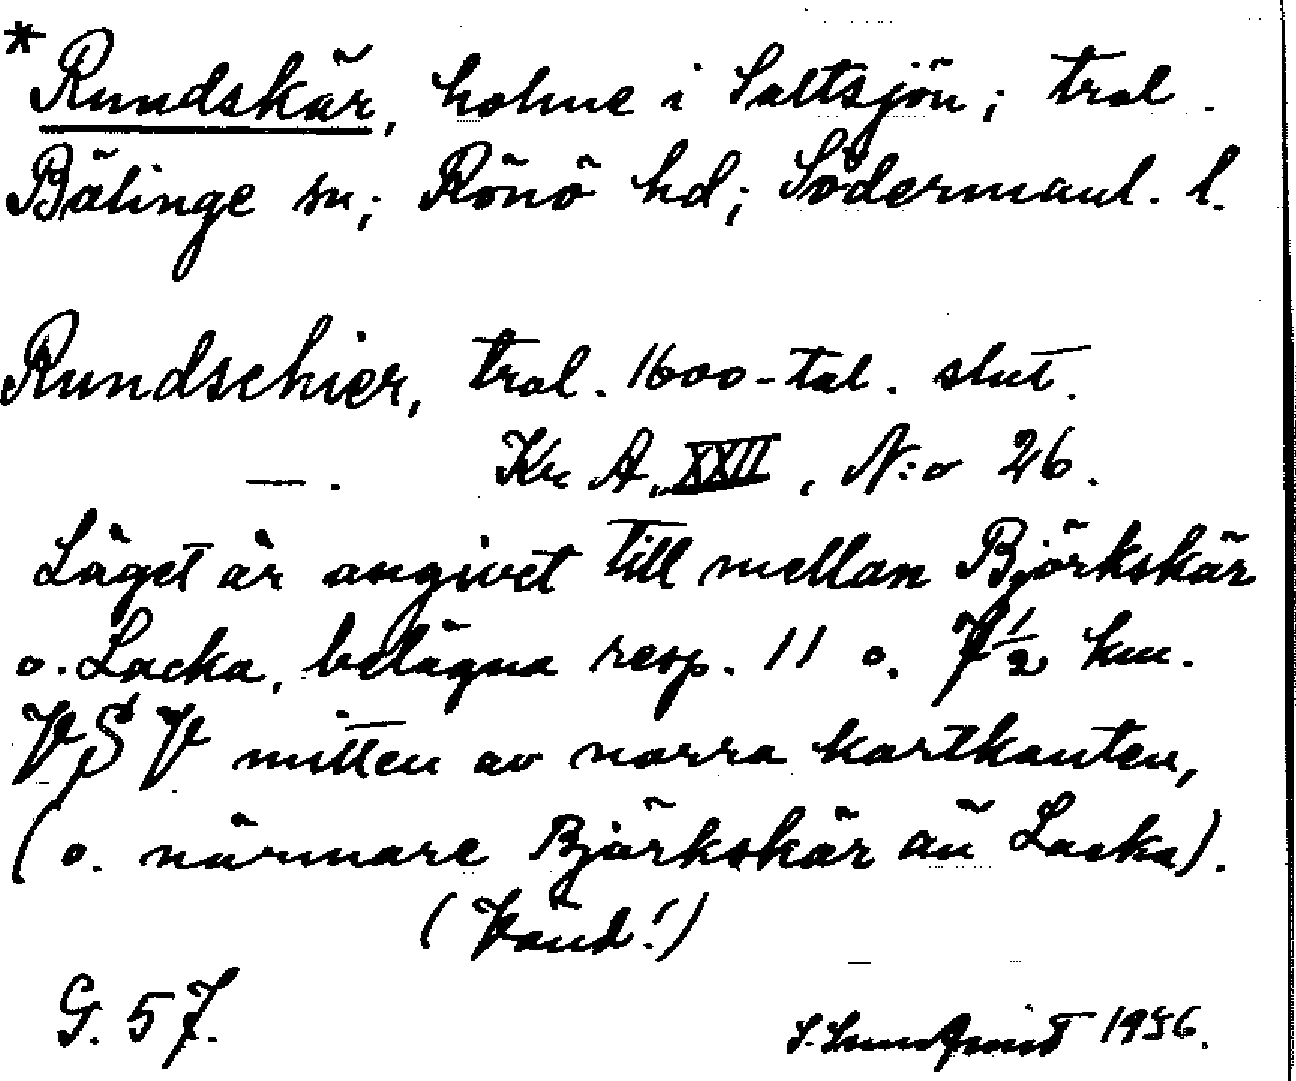 *Rundskär, holme i Saltsjön; trol.
Bälinge sn; Rönö hd; Södermanl. l.
Rundschier, trol. 1600-tal. slut.
—. Kr. A, XXII, N:o 26.
Läget är angivet till mellan Björkskär
o. Lacka, belägna resp. 11 o. 7½ km.
VSV mitten av norra kartkanten,
(o. närmare Björkskär än Lacka).
(Vänd!)
G. 57. 1956.